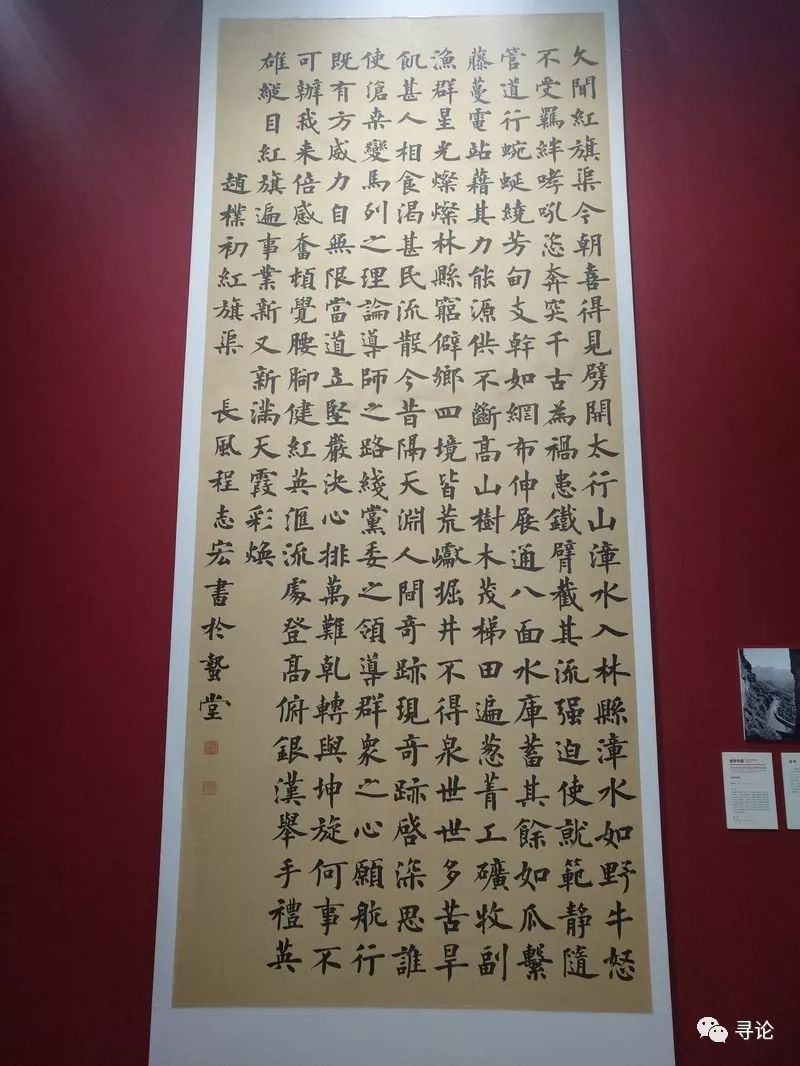 久聞紅旗渠今朝喜得見劈開太行山漳水入林縣漳水如野牛怒
不受羈絆哮吼恣奔突千古為禍患鐵臂截其流强迫使就範静隨
管道行蜿蜒繞芳甸支幹如網布伸展通八面水庫蓄其餘如瓜繫
藤蔓電站藉其力能源供不斷高山樹木茂梯田遍葱菁工礦牧副
漁群星光燦燦林縣窮僻鄉四境皆荒巘掘井不得泉世世多苦旱
飢甚人相食渴甚民流散今昔隔天淵人間奇跡現奇跡啓深思誰
使滄桑變馬列之理論導師之路綫黨委之領導群衆之心願航行
既有方威力自無限當道立堅巖決心排萬難乾轉與坤旋何事不
可辦我来倍感奮頓覺腰脚健紅英滙流處登高俯銀漢舉手禮英
雄縱目紅旗遍事業新又新滿天霞彩焕
趙樸初紅旗渠 長風程志宏書於蟄堂
寻论